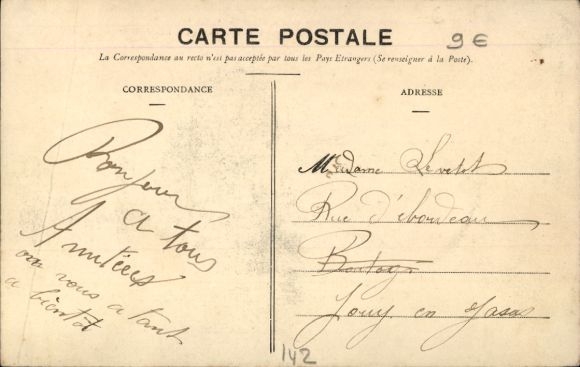 CARTE POSTALE
9 €
La Correspondance au recto n'est pas acceptée par tous les Pays Etrangers (Se renseigner à la Poste).
CORRESPONDANCE
Bonjour
a tous
Amitiées
vous a tant
a bientôt
ADRESSE
Madame Levetot
Rue d'ébordeau
Jouy en Jasas
142